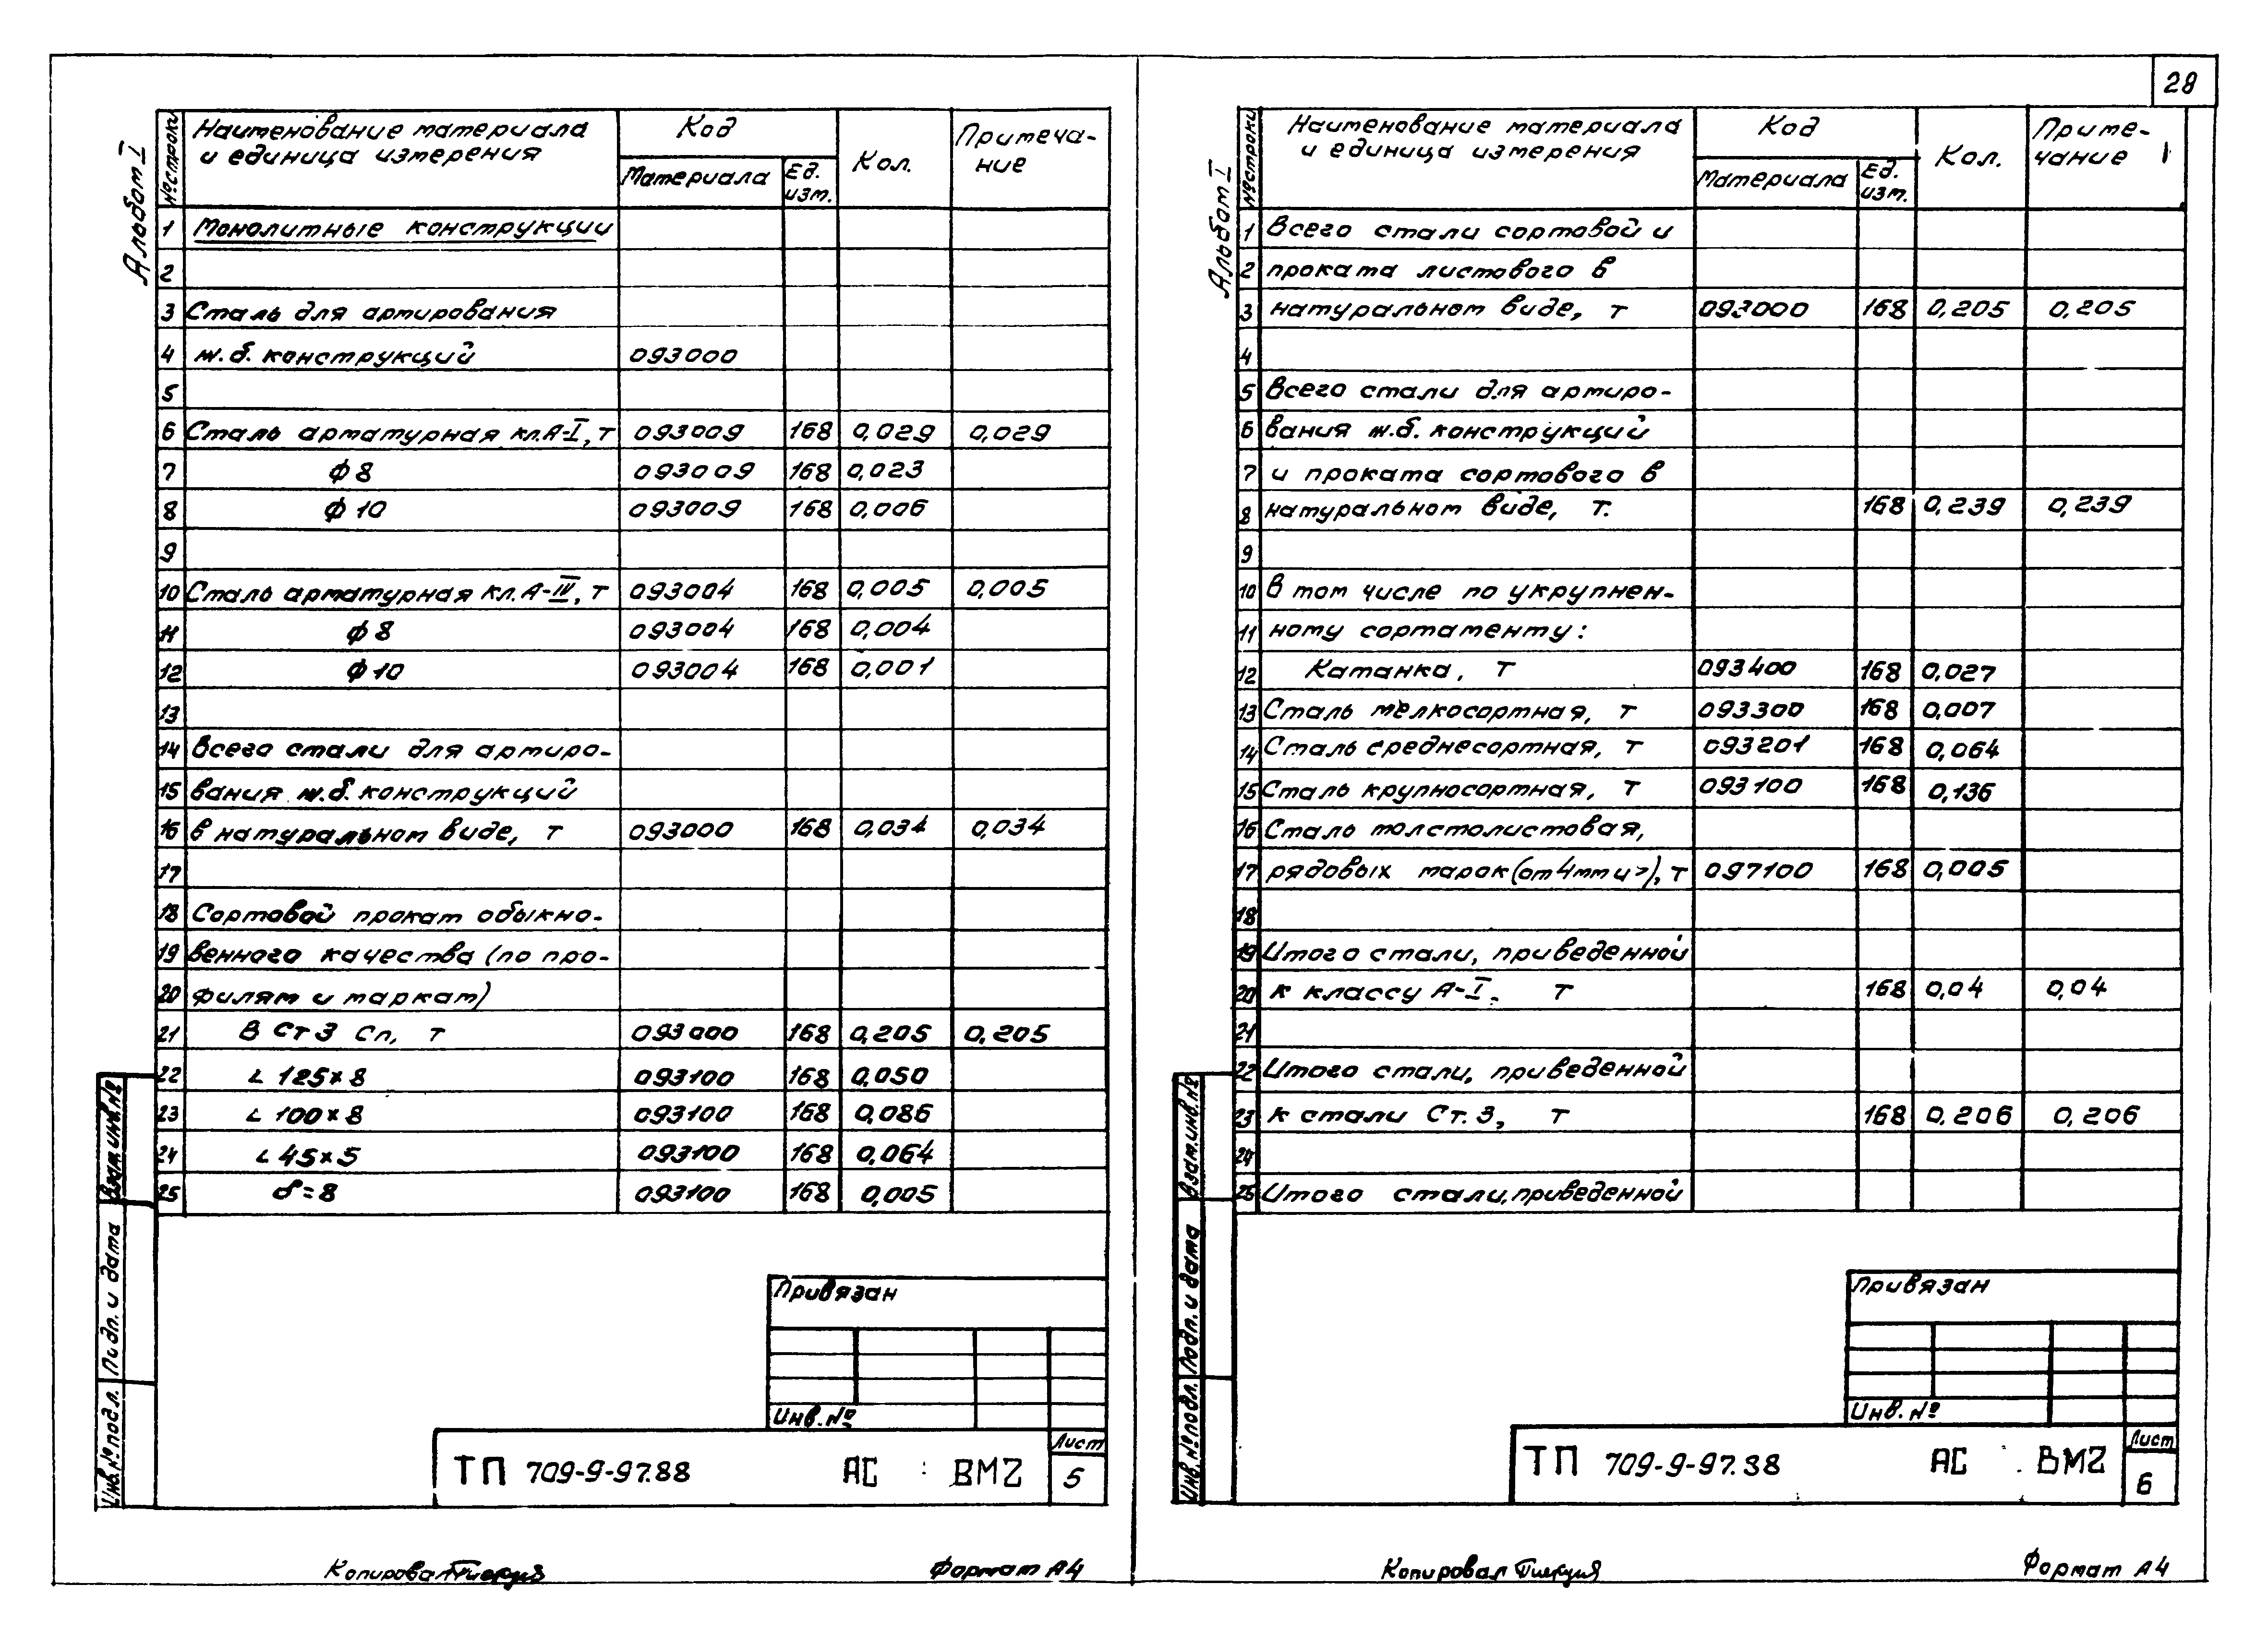 28
Альбом I
№ строки Наименование материала и единица измерения Код Кол. Примеча-ние
Материала Ед. изм.
1 Монолитные конструкции
2
3 Сталь для армирования
4 ж.б. конструкций 093000
5
6 Сталь арматурная кл. А-I, т 093009 168 0,029 0,029
7 ф 8 093009 168 0,023
8 ф 10 093009 168 0,006
9
10 Сталь арматурная кл. А-III, т 093004 168 0,005 0,005
11 ф 8 093004 168 0,004
12 ф 10 093004 168 0,001
13
14 Всего стали для армиро-
15 вания ж.б. конструкций
16 в натуральном виде, т 093000 168 0,034 0,034
17
18 Сортовой прокат обыкно-
19 венного качества (по про-
20 филям и маркам)
21 В Ст 3 Сп, т 093000 168 0,205 0,205
22 ∟ 125×8 093100 168 0,050
23 ∟ 100×8 093100 168 0,086
24 ∟ 45×5 093100 168 0,064
25 δ=8 093100 168 0,005
Взам. инв. №
Подп. и дата
Инв. № подл.
Привязан
Инв. №
ТП 709-9-97.88 АС ВМ2 Лист 5
Копировал
Формат А4
Альбом I
№ строки Наименование материала и единица измерения Код Кол. Приме-чание
Материала Ед. изм.
1 Всего стали сортовой и
2 проката листового в
3 натуральном виде, т 093000 168 0,205 0,205
4
5 Всего стали для армиро-
6 вания ж.б. конструкций
7 и проката сортового в
8 натуральном виде, т. 168 0,239 0,239
9
10 В том числе по укрупнен-
11 ному сортаменту:
12 Катанка, т 093400 168 0,027
13 Сталь мелкосортная, т 093300 168 0,007
14 Сталь среднесортная, т 093201 168 0,064
15 Сталь крупносортная, т 093100 168 0,136
16 Сталь толстолистовая,
17 рядовых марок (от 4мм и >), т 097100 168 0,005
18
19 Итого стали, приведенной
20 к классу А-I. т 168 0,04 0,04
21
22 Итого стали, приведенной
23 к стали Ст. 3, т 168 0,206 0,206
24
25 Итого стали, приведенной
Взам. инв. №
Подп. и дата
Инв. № подл.
Привязан
Инв. №
ТП 709-9-97.38 АС ВМ2 Лист 6
Копировал
Формат А4